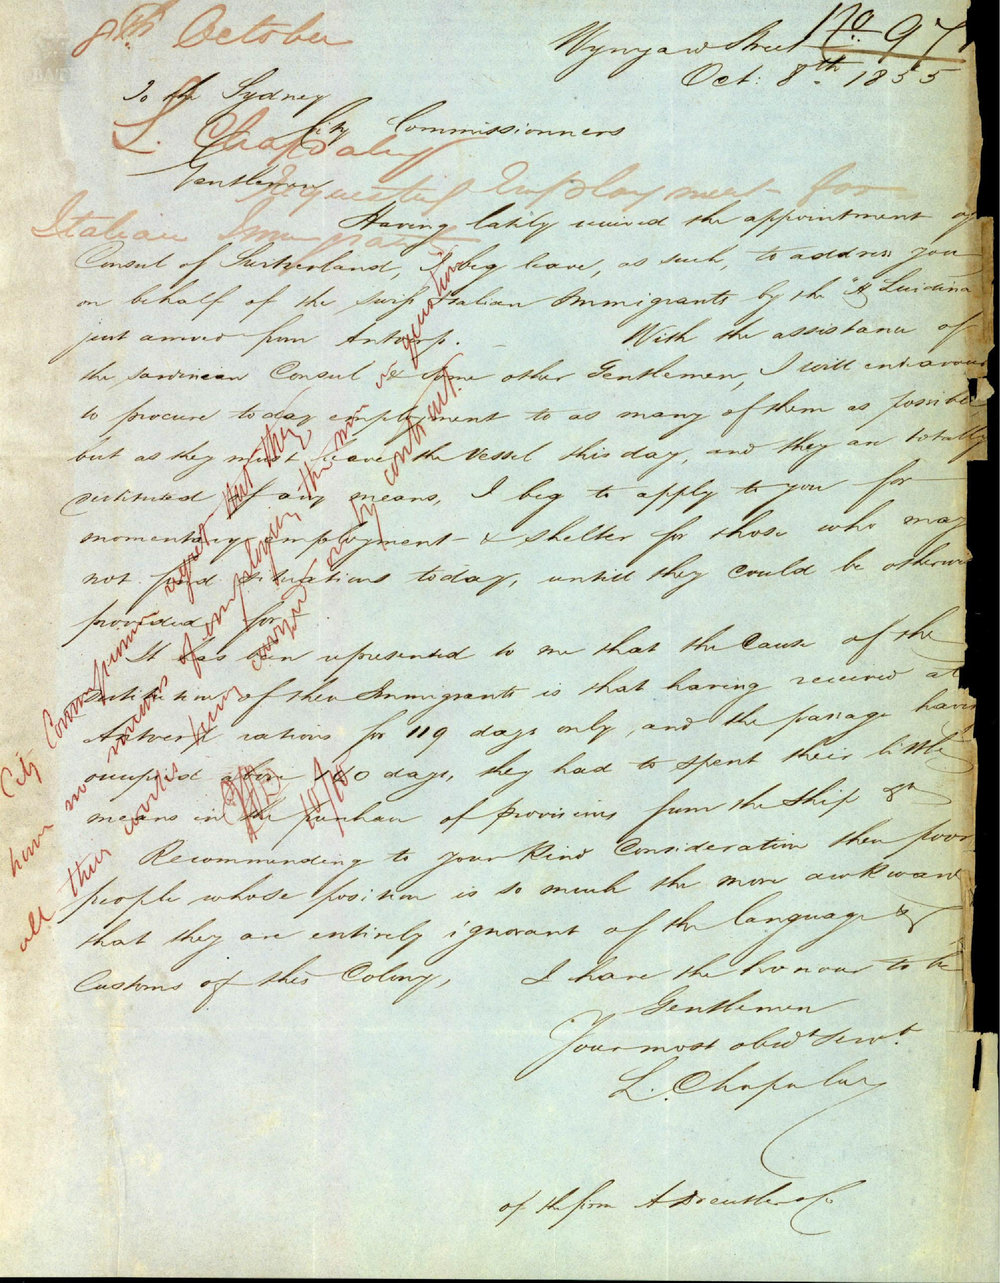 8th October
No 97
Wynyard Street
Oct: 8th 1855
To the Sydney
City Commissionners
L. Chapalay
Gentlemen
Requesting Employment for
Italian Immigrants
Having latily received the appointment of
Consul of Switzerland, I beg leave, as such, to address you
on behalf of the Swiss Italian Immigrants by the
just arrived from Antwerp. — With the assistance of
the Sardinean Consul & some other Gentlemen, I will endeavour
to procure today employment to as many of them as possible
but as they must leave the Vessel this day, and they are totally
destituted of any means, I beg to apply to you for
momentary employment & shelter for those who may
not find situations today, untill they could be otherwise
provided for.
It has been represented to me that the Cause of the
destitution of these Immigrants is that having received at
Antwerp rations for 119 days only, and the passage having
occupied above days, they had to spent their little
means in the purchase of provisions from the Ship
Recommending to your kind Consideration these poor
people whose position is so much the more awkward
that they are entirely ignorant of the language &
Customs of this Colony, I have the honour to be
Gentlemen
Your most obedt Servt
L. Chapalay
of the firm A Dreutler & Co
City Commissioners regret that they
have no means of employing the men in question
all their works being carried on by contract
10/10